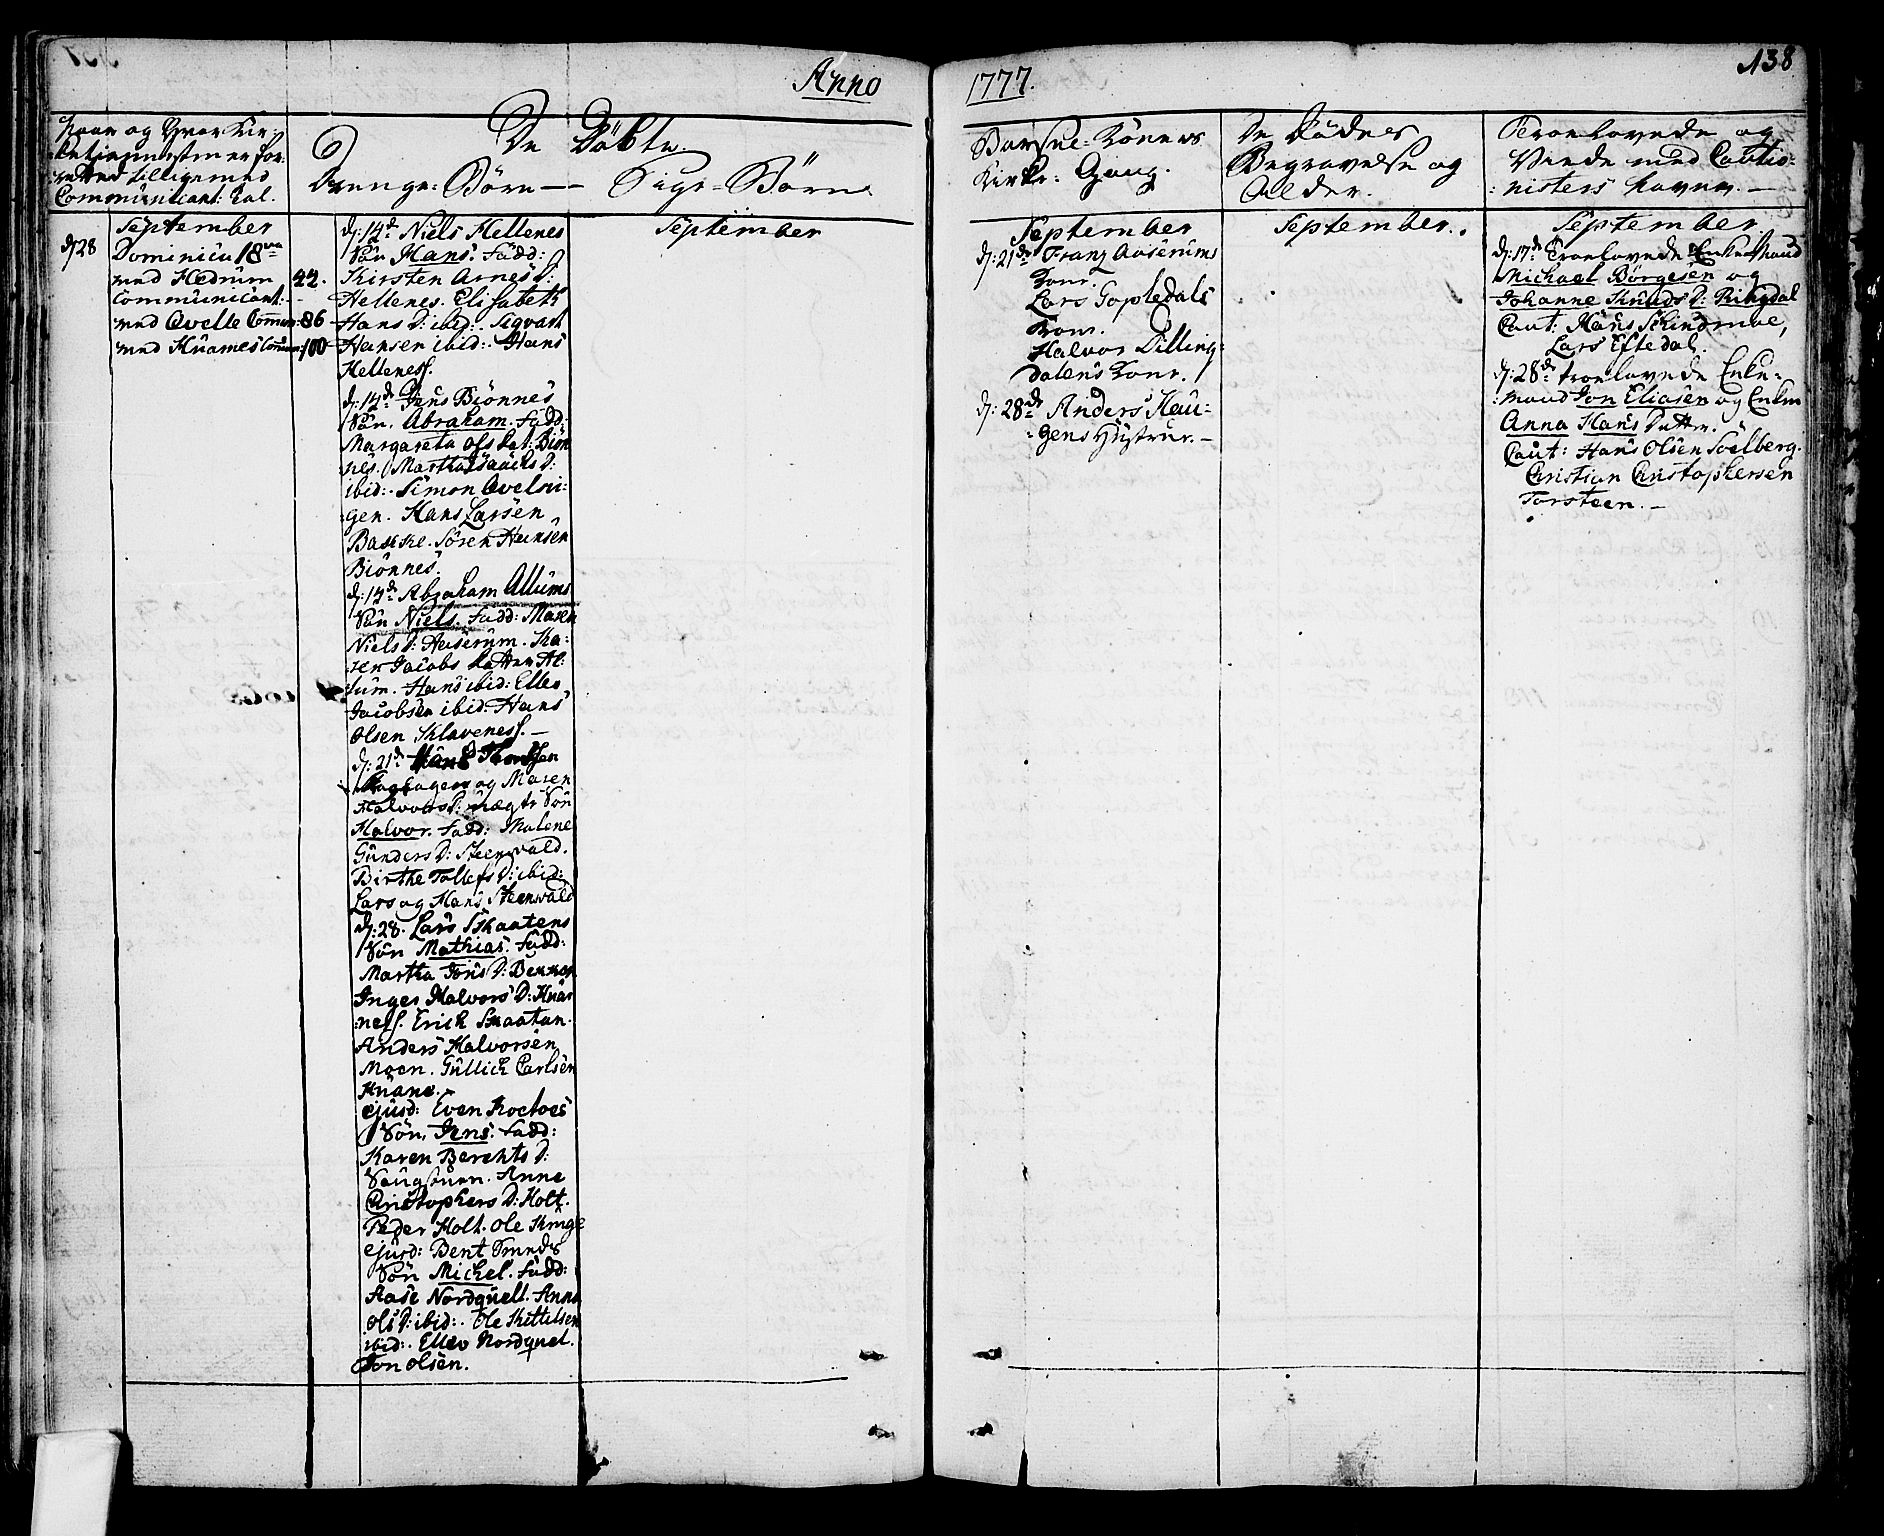 Anno
1777.
138
Naar og Hvor Kir:
Communicant: Tal.
De Döbte.
Drenge: Börn — Pige-Börn
Barsel-Koners
Kirke: Gang.
De Dödes
Begravelse og
Alder.
Troelovede og
Viede med Cautio:
:nisters Navne. —
September
d: 28 Dominica 18
med Hedrum 44.
Communicant:
med Qvelle Comun: 86
med Kuames Comun: 100
d: 14 Niels Hellenes
Sön Hans. Fadd:
Kirsten Arnes D:
Hellenes. Elisabeth
Hans D: ibid: Sigvart
Hansen ibid: Hans
Hellenes.
d: 14 Jens Biönnes
Sön. Abraham. Fadd:
Margareta Ols Dat: Biön
nes. Martha Isaachs D:
ibid: Simon Qvelni:
gen. Hans Larsen
Bakke. Sören Hansen
Biönnes.
d: 14 Abraham Allums
Sön Niels. Fadd: Maren
Niels D: Auserum. Ka:
:ren Jacobs Datter Al:
lum. Hans ibid: Ellev
Jacobsen ibid: Hans
Olsen Sklavenes. —
d: 21 Hans
og Maren
Halvors D: uægte Sön
Halvor. Fadd: Malene
Gunders D: Steenvald.
Birthe Tollefs D: ibid:
Lars og Hans Steenvald
d: 28. Lars Skaatens
Sön Mathias. Fadd:
Martha Jons D:
Inger Halvors D: Kuar
:nes. Erich Skaatan.
Anders Halvorsen
Moen. Gullich Carlsen
Kuane.
ejusd: Even
Sön, Jens. Fadd:
Karen Berehts D:
Anne
Christophers D: Holt.
Peder Holt. Ole
ejusd: Bent Smeds
Sön Michel. Fadd:
Aase Nordqvell. Anna
Ols D: ibid: Ole Kittelsen
ibid: Ellev Nordqvel.
Jon Olsen.
September
September
d: 21 Franz Auserums
Kone.
Lars Gopledals
Kone.
Halvor Dilling:
dalens Kone.
d: 28 Anders Hau:
:gens Hustrue. —
September.
September.
d: 17 Troelovede Enkemand
Michael Börgesen og
Johanne Knuds D: Ringdal
Caut: Hans
Lars Eftedal.
d: 28 troelovede Enke:
:mand Jon Eliasen og Enken
Anna Hans Datter.
Caut: Hans Olsen Solberg.
Christian Christophersen
Torsteen. —